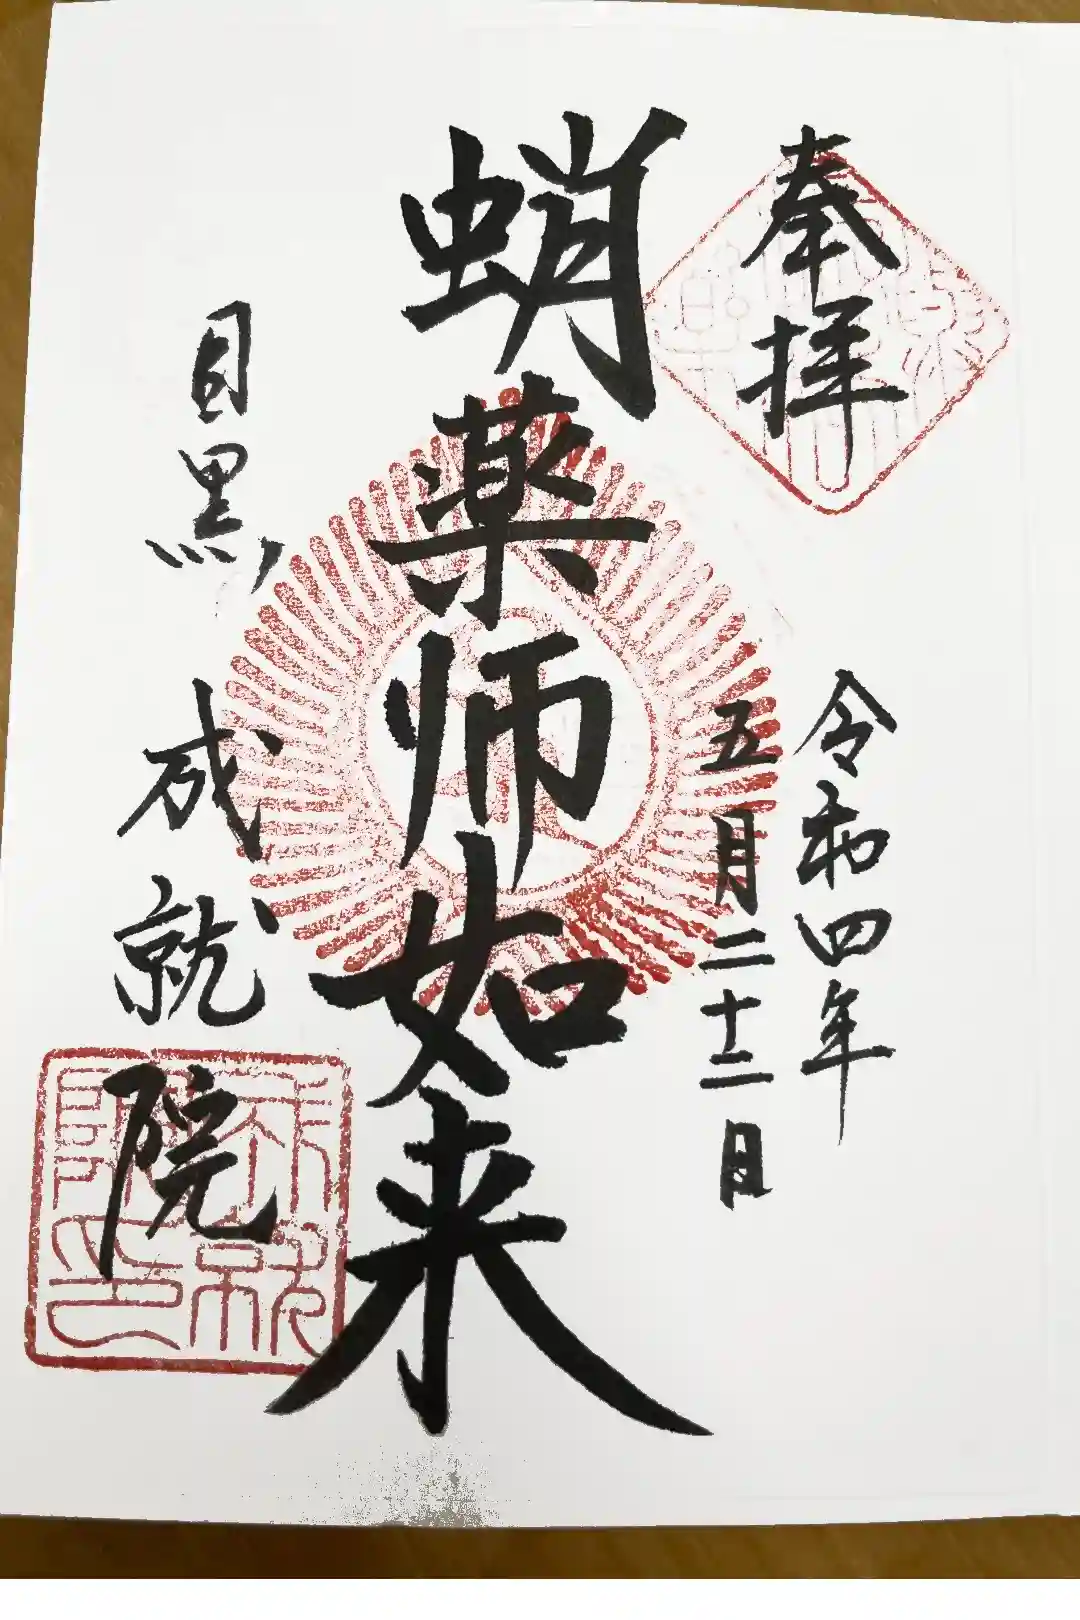 奉拝
令和四年
五月二十二日
蛸薬师如来
目黒 成就院
成就院印